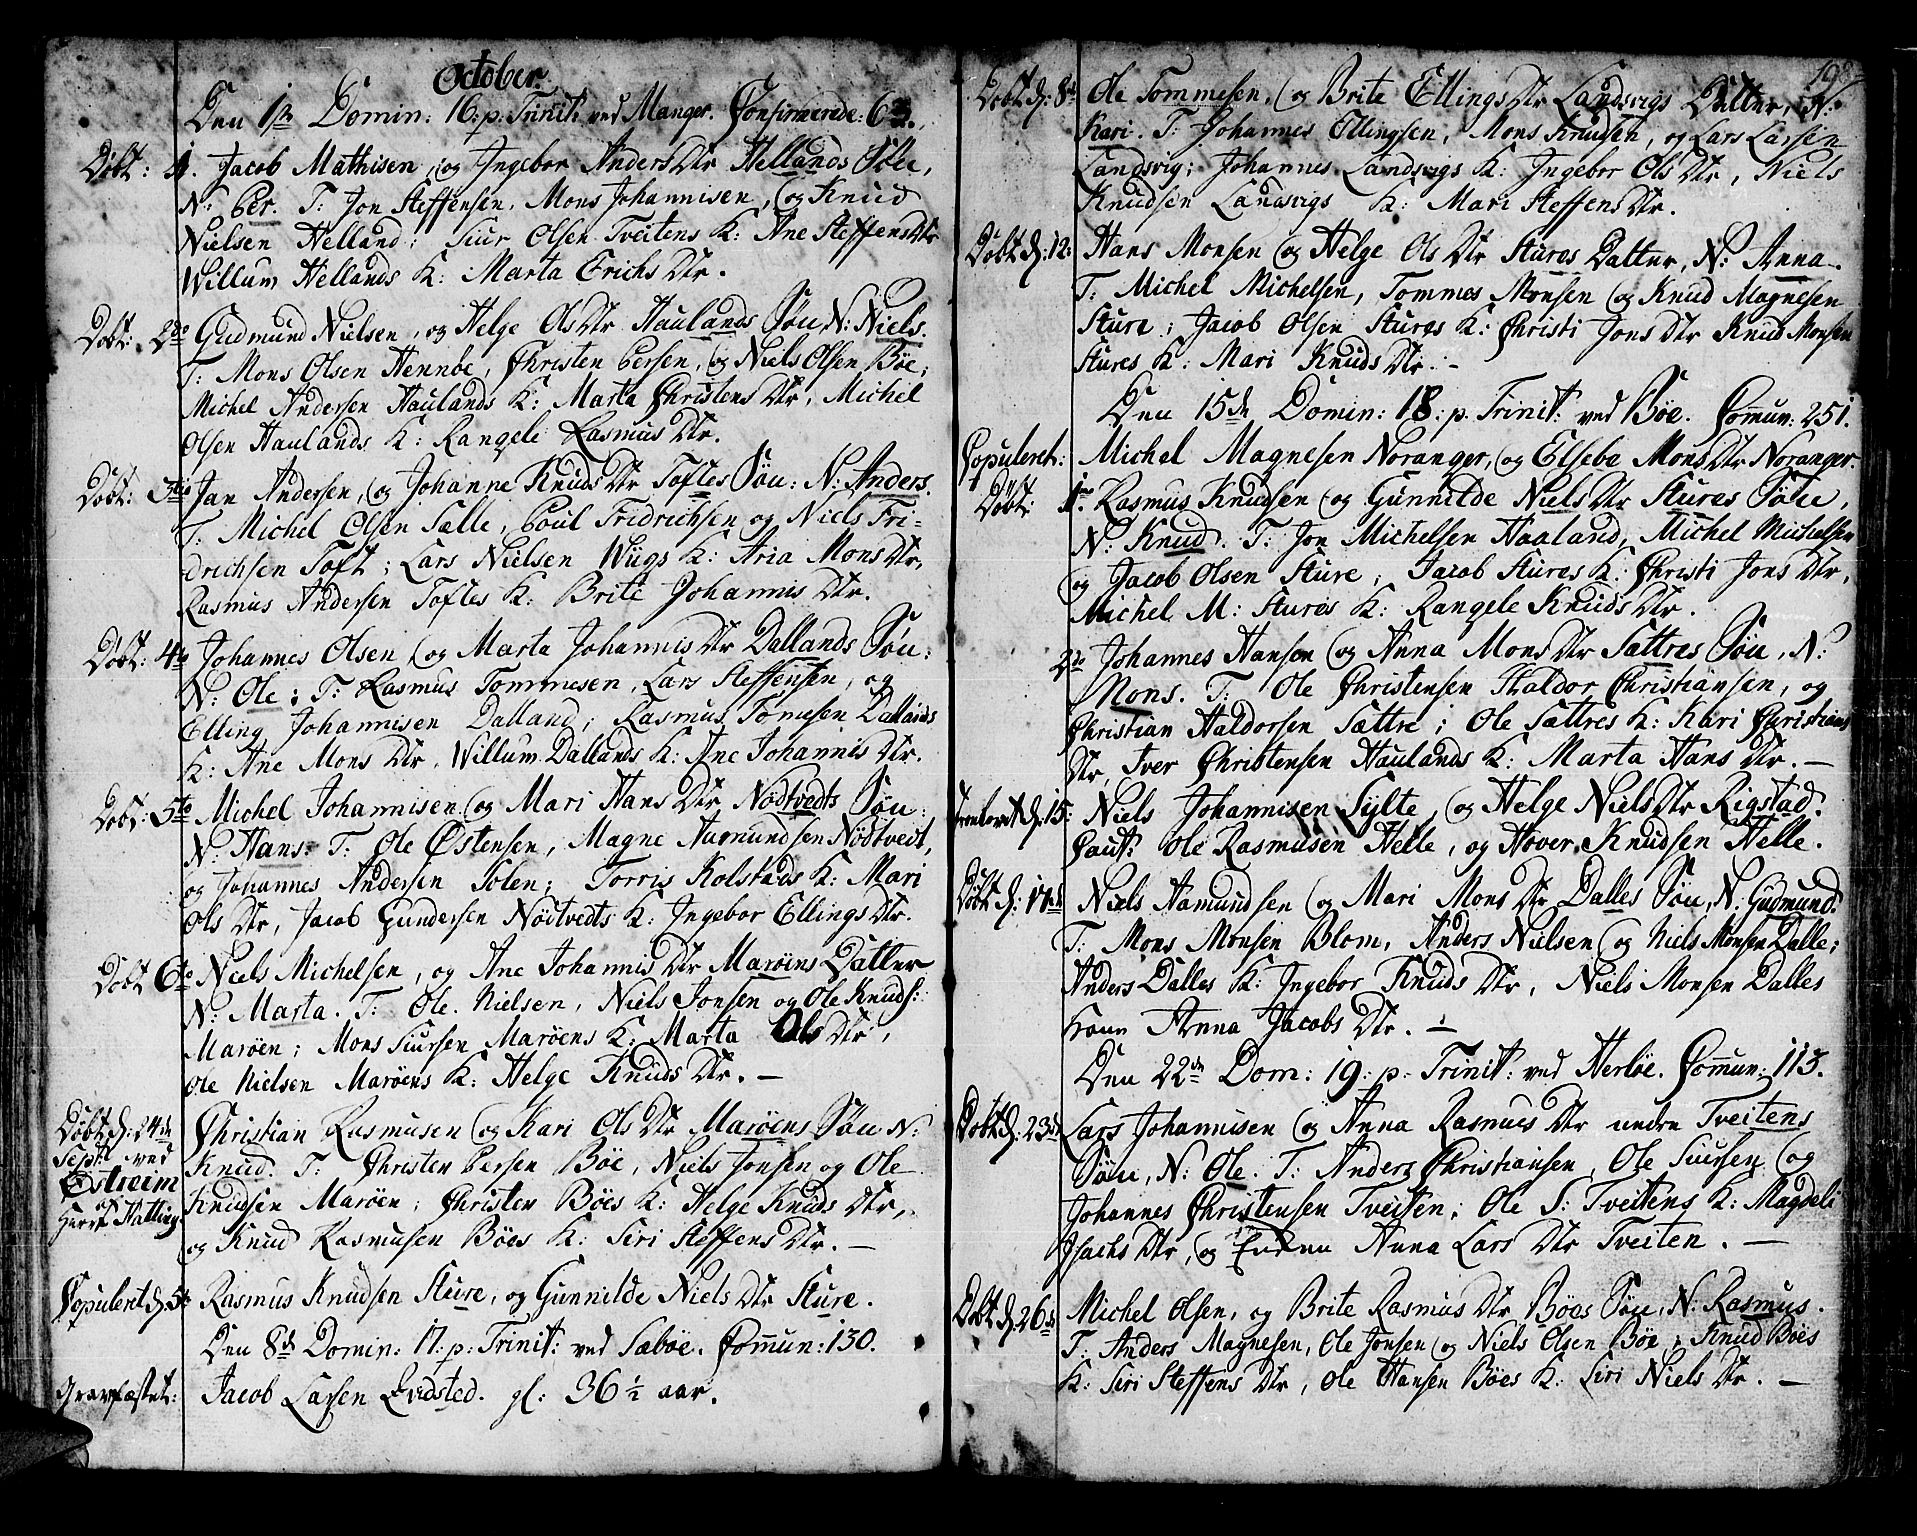 October.
Den 1ste Domin: 16. p. Trinit: ved Manger. Confirmerede: 63.
Döbt: 1. Jacob Mathisen, og Ingebor Anders Dtr Hellands Sön,
N: Per. T: Jon Steffensen, Mons Johannisen, og Knud
Nielsen Helland; Siur Olsen Tveitens K: Ane Steffens Dtr
Willum Hellands K: Marta Erichs Dtr.
Döbt: 2do Gudmund Nielsen, og Helge Ols Dtr Haulands Sön, N: Niels.
T: Mons Olsen Hennöe, Christen Persen, og Niels Olsen Böe;
Michel Andersen Haulands K: Marta Christens Dtr, Michel
Olsen Haulands K: Rangele Rasmus Dtr.
Döbt: 3tio Jan Andersen, og Johanne Knuds Dtr Toftes Sön: N: Anders.
T: Michel Olsen Sælle, Poul Fridrichsen og Niels Fri-
drichsen Toft; Lars Nielsen Wiigs K: Aria Mons Dtr,
Rasmus Andersen Toftes K: Brite Johannis Dtr.
Döbt: 4to Johannes Olsen og Marta Johannis Dtr Dallands Sön:
N: Ole; T: Rasmus Tommesen, Lars Steffensen, og
Elling Johannisen Dalland; Rasmus Tomesen Dallands
K: Ane Mons Dtr, Willum Dallands K: Ane Johannis Dtr.
Döbt: 5to Michel Johannisen og Mari Hans Dtr Nödtvedts Sön:
N: Hans. T: Ole Östensen, Magne Aamundsen Nödtvedt,
og Johannes Andersen Solen; Torris Kolstads K: Mari
Ols Dtr, Jacob Gundersen Nödtvedts K: Ingebor Ellings Dtr.
Döbt 6to Niels Michelsen, og Ane Johannis Dtr Maröens Datter
N: Marta. T: Ole Nielsen, Niels Jonsen og Ole Knuds:
Maröen; Mons Siursen Maröens K: Marta Ols Dtr,
Ole Nielsen Maröens K: Helge Knuds Dtr. —
Döbt d: 24de Christian Rasmusen og Kari Ols Dtr Maröens Sön N:
Sept: ved Knud. T: Christen Persen Böe, Niels Jonsen og Ole
Östreim Knudsen Maröen; Christen Böes K: Helge Knuds Dtr,
af Herr Hatting og Knud Rasmusen Böes K: Siri Steffens Dtr. —
Copuleret d: 5te Rasmus Knudsen Sture, og Gunnilde Niels Dtr Sture.
Den 8de Domin: 17. p: Trinit: ved Sæböe. Comun: 130.
Gravfæstet: Jacob Larsen Evdsted. gl: 36 1/2 aar.
198
Döbt d: 8de Ole Tommesen, og Brite Ellings Dtr Landsvigs Datter, N:
Kari. T: Johannes Ellingsen, Mons Knudsen, og Lars Larsen
Landsvig; Johannes Landsvigs K: Ingebor Ols Dtr, Niels
Knudsen Landsvigs K: Mari Steffens Dtr.
Döbt d: 12: Hans Monsen og Helge Ols Dtr Stures Datter, N: Anna.
T: Michel Michelsen, Tommes Monsen og Knud Magnesen
Sture; Jacob Olsen Stures K: Christi Jons Dtr Knud Monsen
Stures K: Mari Knuds Dtr. –
Den 15de Domin: 18. p. Trinit: ved Böe. Comun: 251.
Copuleret: Michel Magnesen Noranger, og Elsebe Mons Dtr Noranger.
Döbt: 1mo Rasmus Knudsen og Gunnilde Niels Dtr Stures Sön,
N: Knud. T: Jon Michelsen Haaland, Michel Michelsen
og Jacob Olsen Sture; Jacob Stures K: Christi Jons Dtr,
Michel M: Stures K: Rangele Knuds Dtr.
2do Johannes Hansen og Anna Mons Dtr Sættres Sön, N:
Mons. T: Ole Christensen Haldor Christiansen, og
Christian Haldorsen Sættre; Ole Sættres K: Kari Christians
Dtr, Iver Christensen Haulands K: Marta Hans Dtr. —
Trolovet d: 15: Niels Johannisen Sylte, og Helge Niels Dtr Rigstad.
Caut: Ole Rasmusen Helle, og Hover Knudsen Helle.
Döbt d: 17de Niels Aamundsen og Mari Mons Dtr Dalles Sön, N: Gudmund.
T: Mons Monsen Blom, Anders Nielsen og Niels Monsen Dalle;
Anders Dalles K: Ingebor Knuds Dtr, Niels Monsen Dalles
Kone Anna Jacobs Dtr. —
Den 22de Dom: 19. p. Trinit: ved Herlöe. Comun: 113.
Döbt d: 23de Lars Johannisen og Anna Rasmus Dtr nedre Tveitens
Sön, N: Ole. T: Anders Christiansen, Ole Siursen og
Johannes Christensen Tveiten; Ole S: Tveitens K: Magdeli
Isachs Dtr, og Anna Lars Dtr Tveiten. —
Döbt d: 26de Michel Olsen, og Brite Rasmus Dtr Böes Sön, N: Rasmus.
T: Anders Magnesen, Ole Jonsen og Niels Olsen Böe; Knud Böes
K: Siri Steffens Dtr, Ole Hansen Böes K: Siri Niels Dtr. —